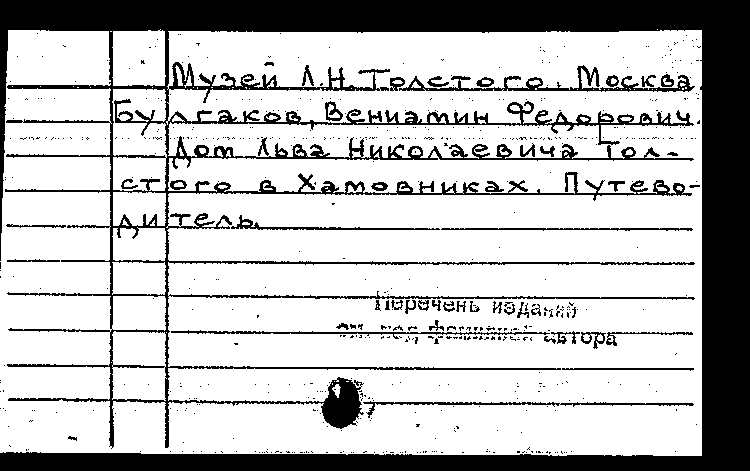 Музей Л.Н. Толстого. Москва.
Булгаков, Вениамин Федорович.
Дом Льва Николаевича Тол-
стого в Хамовниках. Путево-
дитель.
Перечень изданий
см. под фамилией автора